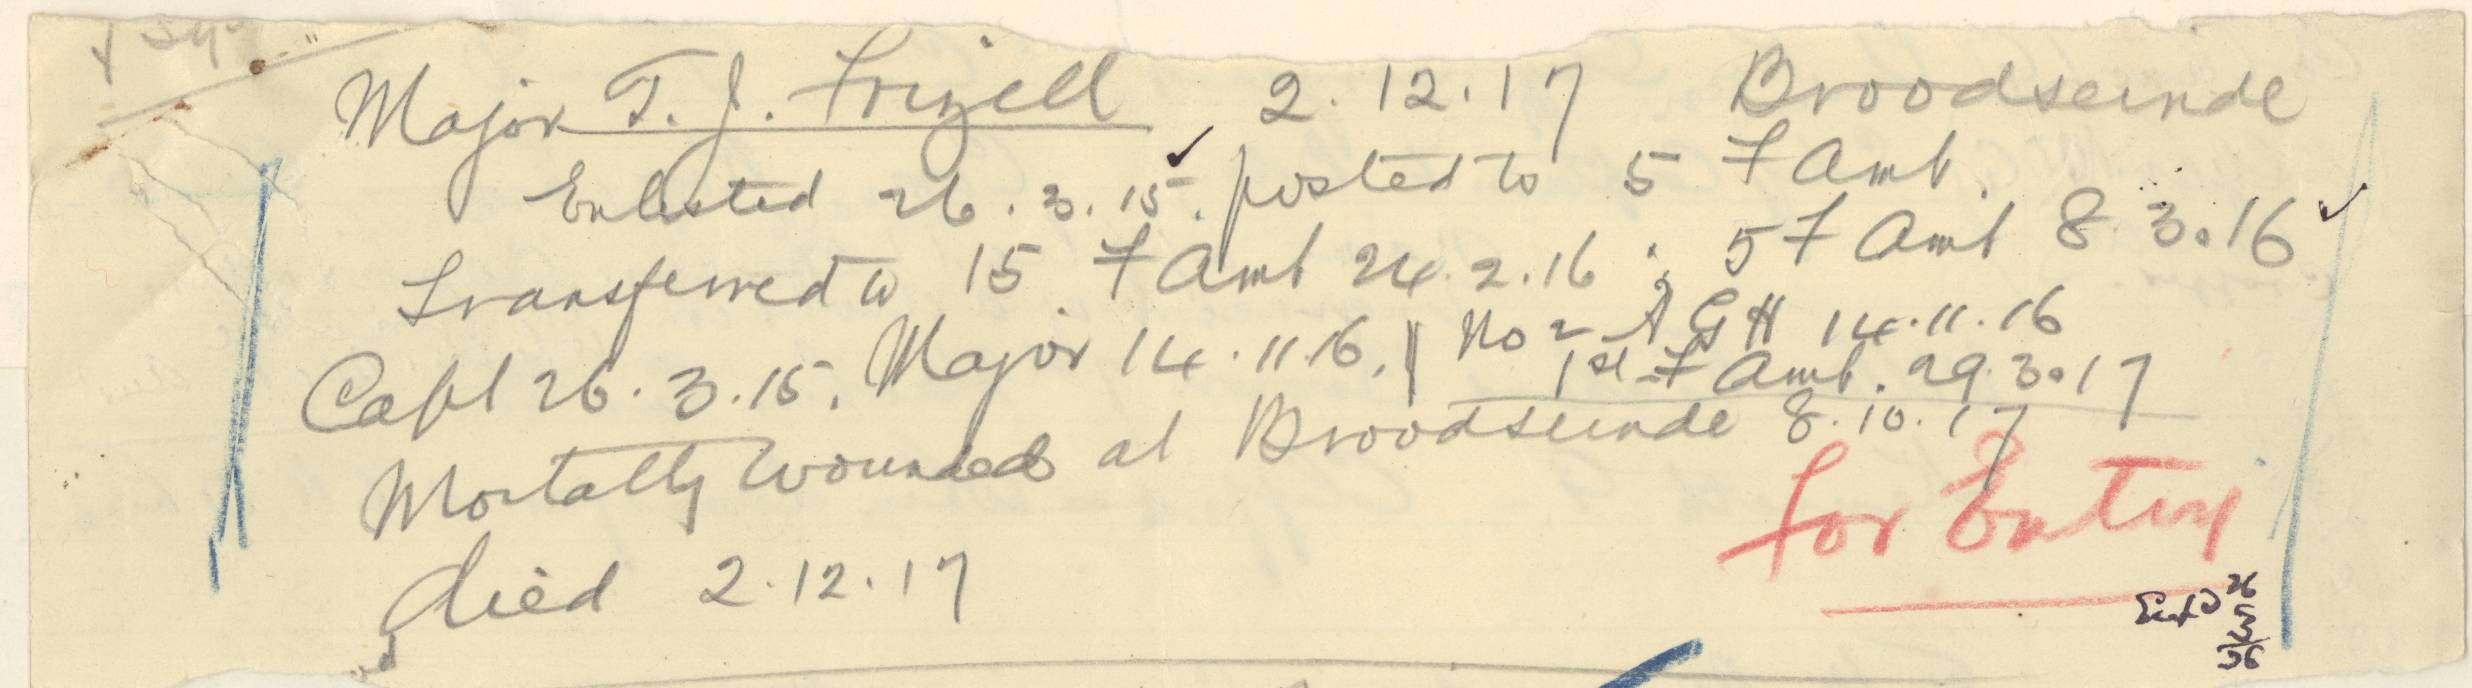 Major T. J. Frizell 2.12.17 Broodseinde
Enlisted 26.3.15. posted to 5 F Amb.
Transferred to 15 F Amb 24.2.16; 5 F Amb 8.3.16
Capt 26.3.15. Major 14.11.16. || No 2 A G H 14.11.16
1st F Amb. 29.3.17
Mortally wounded at Broodseinde 8.10.17
died 2.12.17
for Entry
Entd 26
5
36